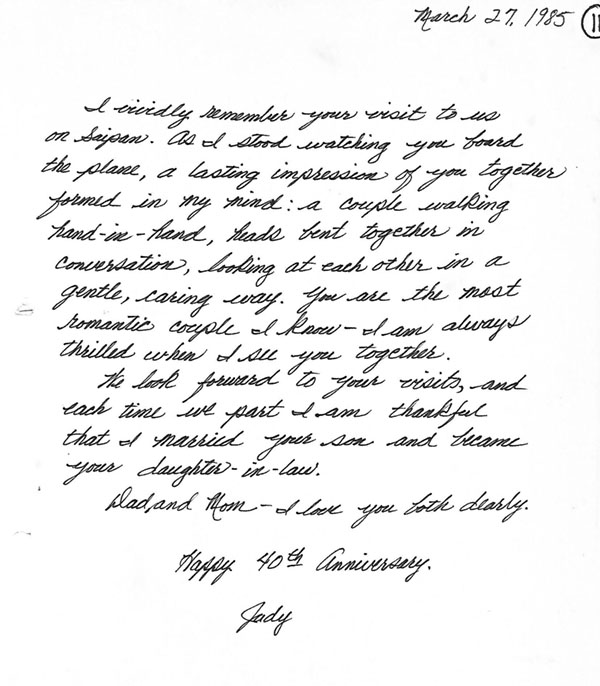 March 27, 1985 11
I vividly remember your visit to us
on Saipan. As I stood watching you board
the plane, a lasting impression of you together
formed in my mind: a couple walking
hand-in-hand, heads bent together in
conversation, looking at each other in a
gentle, caring way. You are the most
romantic couple I know - I am always
thrilled when I see you together.
We look forward to your visits, and
each time we part I am thankful
that I married your son and became
your daughter-in-law.
Dad, and Mom - I love you both dearly.
Happy 40th Anniversary.
Judy